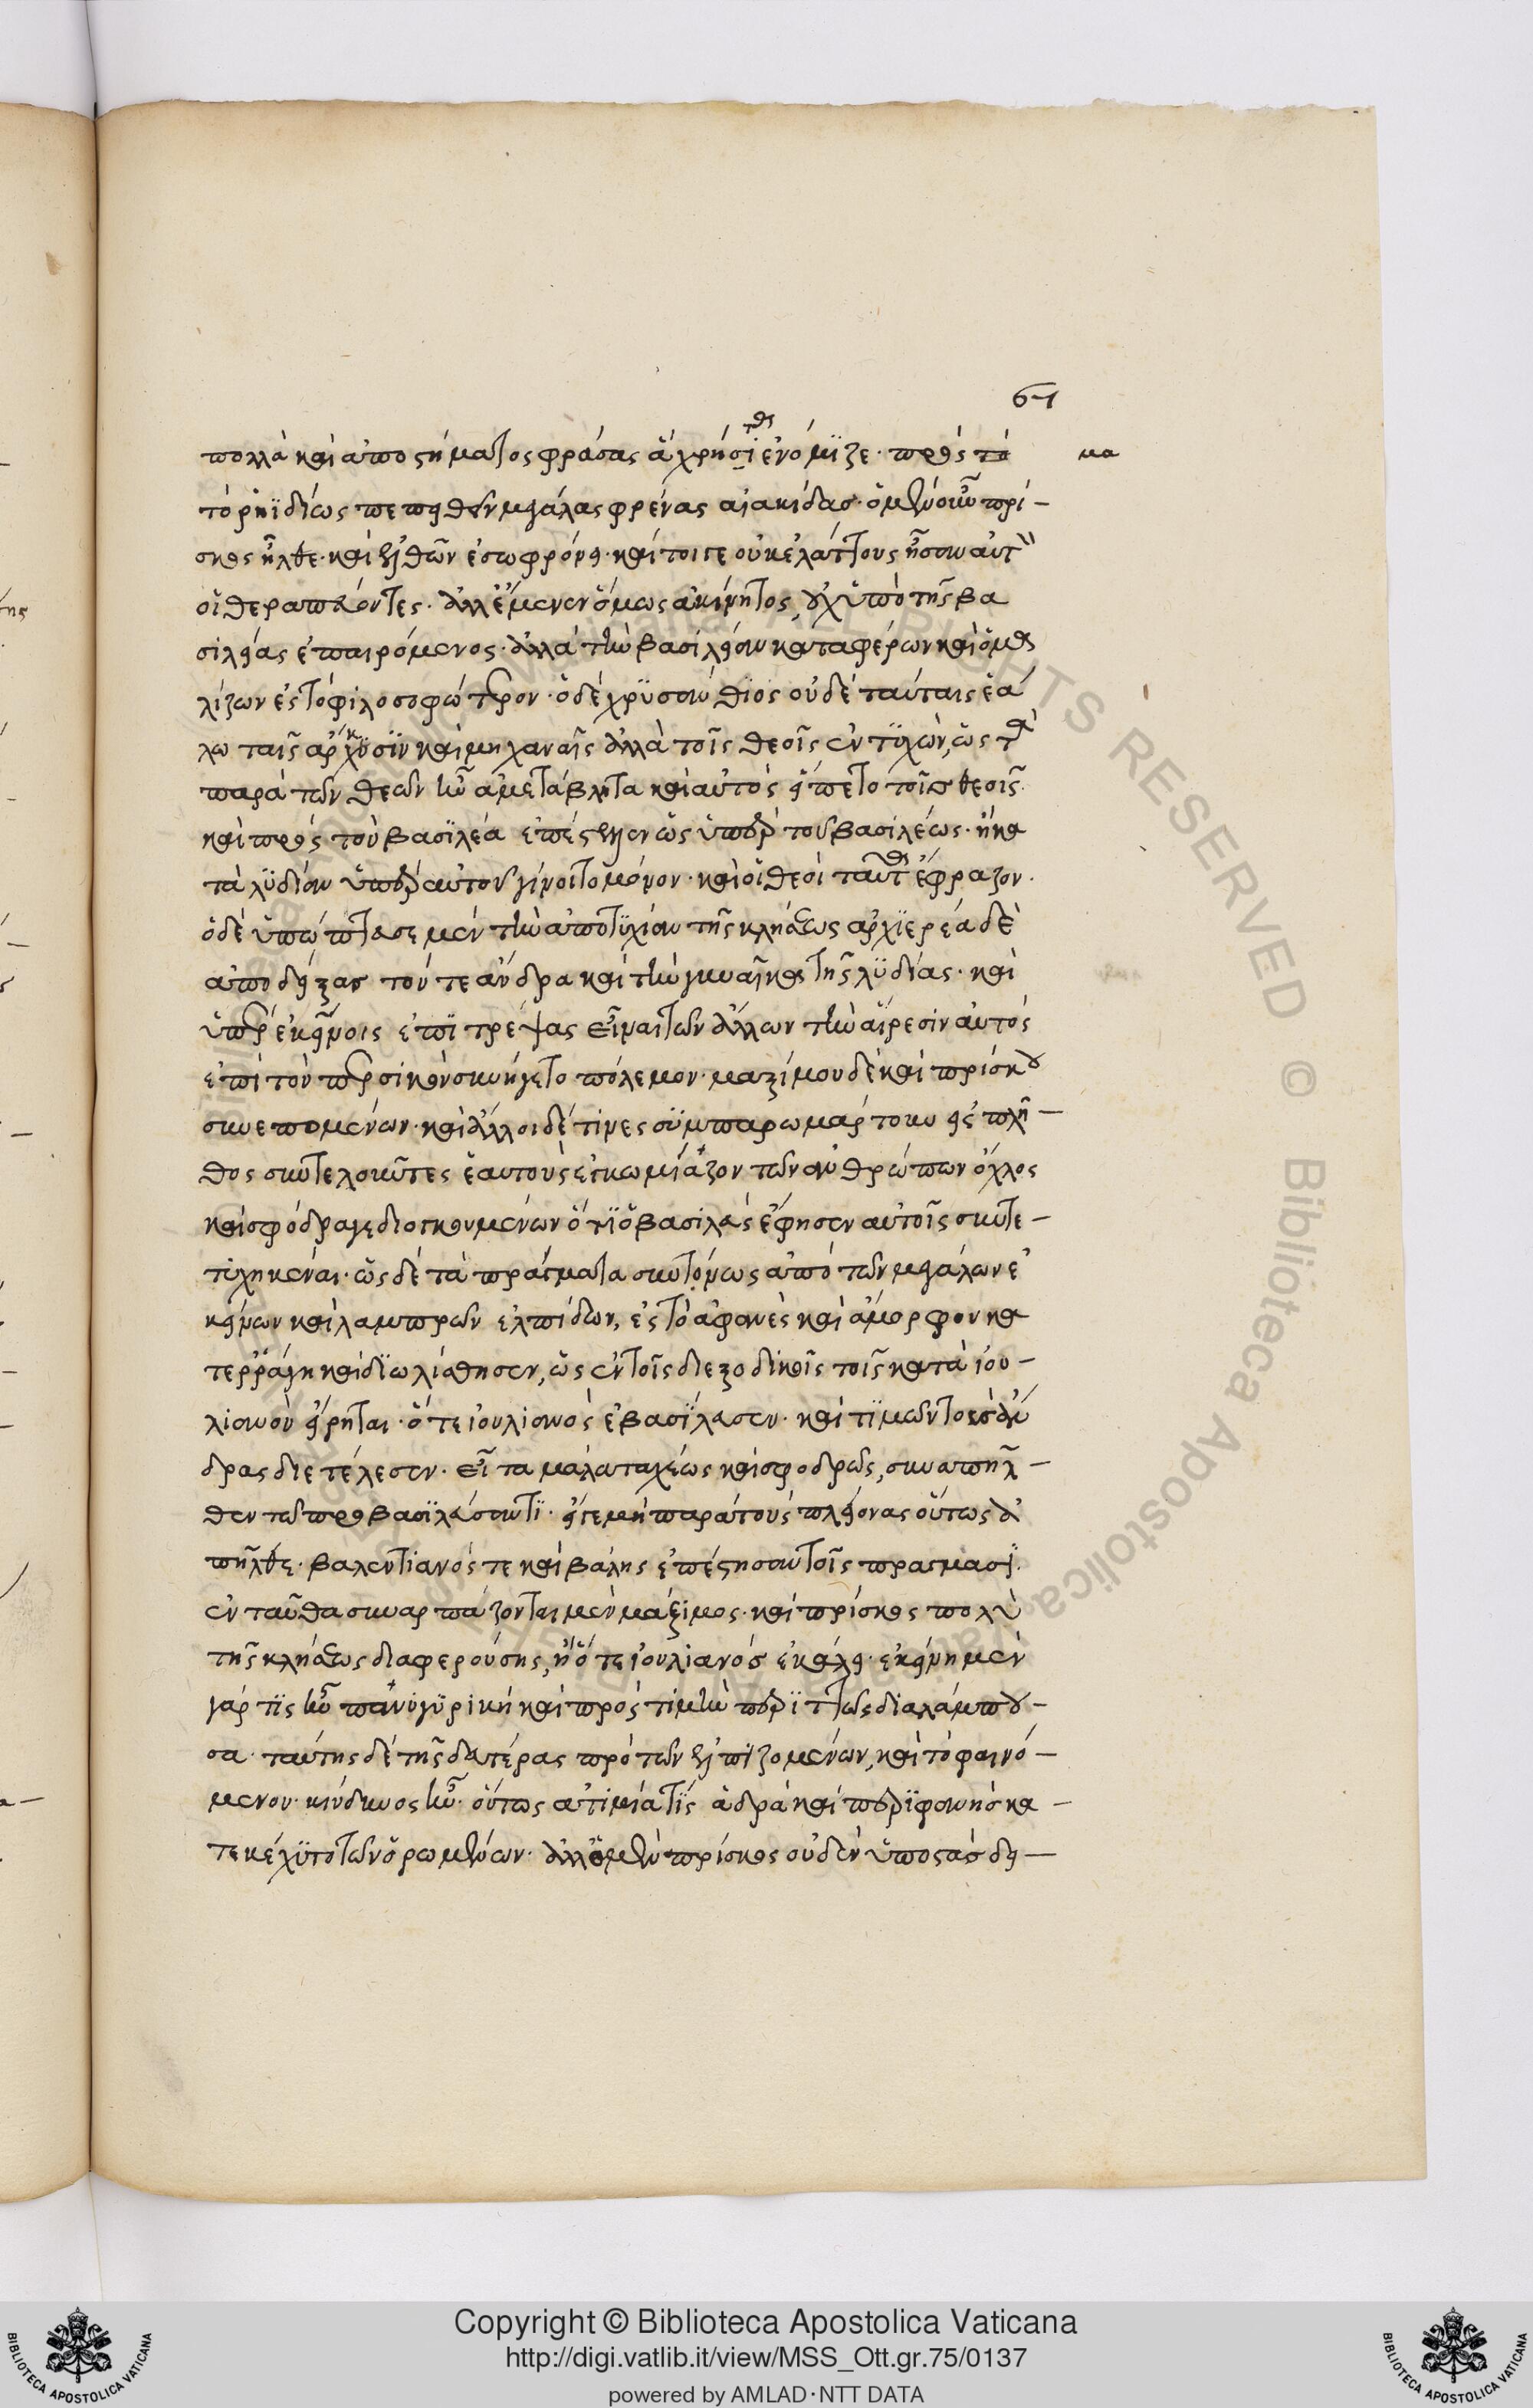 67
πολλὰ καὶ ἀπὸ στήματος φράσας ἄχρησθαι ἐνόμιζε· πρὸς τὸ μα
τὸ ῥηϊδίως πεπιθεῖν μεγάλας φρένας αἰακίδαο· ὁ μὲν οὖν πρί-
σκος ἦλθε· καὶ ἐλθὼν ἐσωφρόνει· καίτοιγε οὐκ ἐλάττους ἦσαν αὐτὸν
οἱ θεραπεύοντες· ἀλλ' ἔμενεν ὅμως ἀκίνητος, οὐχ ὑπὸ τῆς βα
σιλείας ἐπαιρόμενος· ἀλλὰ τὴν βασιλείαν καταφέρων καὶ ὁμα
λίζων ἐς τὸ φιλοσοφώτερον· ὁ δὲ χρυσάνθιος οὐδὲ ταύταις ἑά
λω ταῖς ἄρκυσιν καὶ μηχαναῖς ἀλλὰ τοῖς θεοῖς ἐντυχών, ὡς τὰ
παρὰ τῶν θεῶν ἦν ἀμετάβλητα καὶ αὐτὸς εἵπετο τοῖς θεοῖς·
καὶ πρὸς τὸν βασιλέα ἐπέστειλεν ὡς ὑπὲρ τοῦ βασιλέως· ἡ κα
τὰ λυδίαν ὑπὲρ αὐτοῦ γίνοιτο μόνον· καὶ οἱ θεοὶ ταῦτα ἔφραζον·
ὁ δὲ ὑπώπτευσε μὲν τὴν ἀποτυχίαν τῆς κλήσεως ἀρχιερέα δὲ
ἀποδείξας τόν τε ἄνδρα καὶ τὴν γυναῖκα τῆς λυδίας· καὶ
ὑπ' ἐκείνοις ἐπιτρέψας εἶναι τῶν ἄλλων τὴν αἵρεσιν αὐτὸς
ἐπὶ τὸν περσικὸν συνήγετο πόλεμον· μαξίμου δὲ καὶ πρίσκου
συνεπομένων· καὶ ἄλλοι δέ τινες συμπαρωμάρτουν εἰς πλῆ-
θος συντελοῦντες ἑαυτοὺς ἐγκωμιάζον τῶν ἀνθρώπων ὄχλος
καὶ σφόδρα γε διογκουμένων ὅτι ὁ βασιλεὺς ἔφησεν αὐτοῖς συντε-
τυχηκέναι· ὡς δὲ τὰ πράγματα συντόμως ἀπὸ τῶν μεγάλων ἐ
κείνων καὶ λαμπρῶν ἐλπίδων, ἐς τὸ ἀφανὲς καὶ ἄμορφον κα
τερράγη καὶ διωλίσθησεν, ὡς ἐν τοῖς διεξοδικοῖς τοῖς κατὰ ἰου-
λιανὸν εἴρηται· ὅ τε ἰουλιανὸς ἐβασίλευσεν· καὶ τιμῶν τοὺς ἄν
δρας διετέλεσεν· εἶτα μάλα ταχέως καὶ σφοδρῶς, συναπῆλ-
θεν τῷ προβασιλεύσαντι· εἴγε μὴ παρὰ τοὺς πλείονας οὕτως ἀ
πῆλθε· βαλεντιανός τε καὶ βάλης ἐπέστησαν τοῖς πράγμασι·
ἐνταῦθα συναρπάζονται μὲν μάξιμος· καὶ πρίσκος πολὺ
τῆς κλήσεως διαφερούσης, ἢ ὅτε ἰουλιανὸς ἐκάλει· ἐκείνη μὲν
γάρ τις ἦν πανυγυρικὴ καὶ πρὸς τιμὴν περιττῶς διαλάμπου-
σα· ταύτης δὲ τῆς δευτέρας πρὸ τῶν ἐλπιζομένων, καὶ τὸ φαινό-
μενον· κίνδυνος ἦν· οὕτως ἀτιμία τίς ἁδρὰ καὶ περιφανὴς κα-
τεκέχυτο τῶν ὁρωμένων· ἀλλ' ὁ μὲν πρίσκος οὐδὲν ὑποστὰς δει-
Copyright © Biblioteca Apostolica Vaticana
http://digi.vatlib.it/view/MSS_Ott.gr.75/0137
powered by AMLAD·NTT DATA